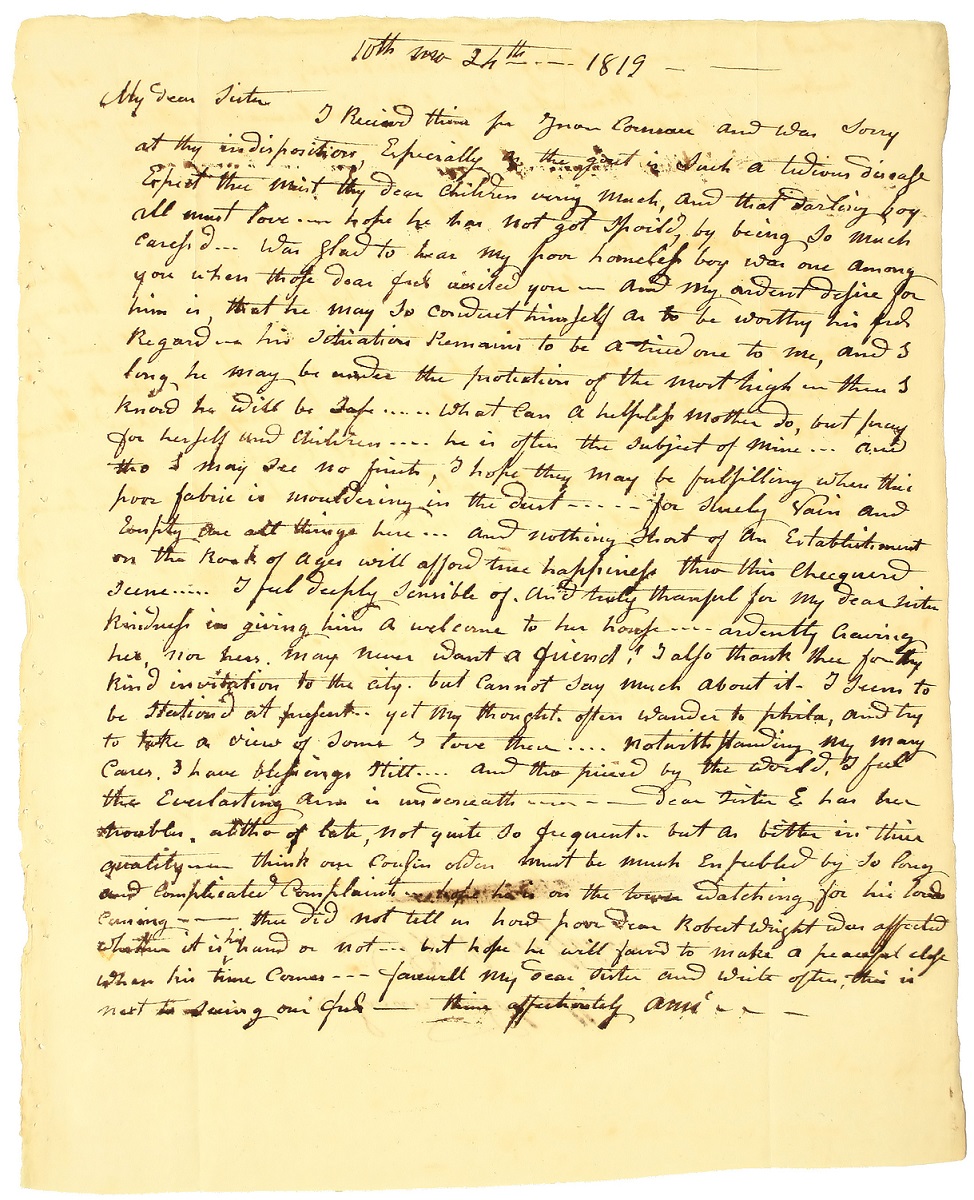 10th mo 24th --- 1819 — —
My dear Sister
I Received thine pr Comeau and was Sorry
at thy indisposition, Especially as the gout is Such a tedious disease
Expect thee mist thy dear children very much, and that darling boy
all must love --- hope he has not got Spoild, by being so much
caress'd --- was glad to hear my poor homeless boy was one among
you when those dear frds visited you — and my ardent desire for
him is, that he may so conduct himself as to be worthy his frds
Regard --- his Situation Remains to be a tried one to me, and I
long he may be under the protection of the most high --- then I
know he will be Safe ..... what can a helpless mother do, but pray
for herself and children .... he is often the subject of mine ... and
tho I may see no fruits, I hope they may be fulfilling when this
poor fabric is mouldering in the dust ----- for surely Vain and
Empty are all things here ... and nothing short of an Establishment
on the Rock of Ages will afford true happiness thro this Checquerd
Scene ..... I feel deeply Sensible of. and truly thankful for my dear Sister
kindness in giving him a welcome to her house ---- ardently craving
her, nor hers. may never want a friend! I also thank thee for thy
kind invitation to the city. but cannot say much about it - I seem to
be Station'd at present -- yet my thoughts often wander to phila, and try
to take a view of some I love there .... notwithstanding my many
cares, I have blessings still .... and tho by the world, I feel
the Everlasting arm is underneath ------ Dear Sister E has her
troubles, altho of late, not quite so frequent -- but as bitter in their
quality --- think our Cousin olden must be much Enfeebled by so long
and complicated Complaints --- hope he is on the tower watching for his lords
coming --- thee did not tell us how poor dear Robert Wright was affected
whether it is his hand or not --- but hope he will favord to make a peaceful close
when his time comes --- farewell my dear sister and write often, this is
next to seeing our frds — thine affectionately Ann